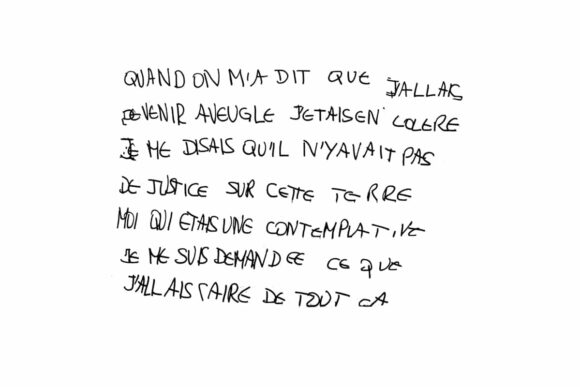 QUAND ON M'A DIT QUE J'ALLAIS
DEVENIR AVEUGLE J'ETAIS EN COLERE
JE ME DISAIS QU'IL N'Y AVAIT PAS
DE JUSTICE SUR CETTE TERRE
MOI QUI ETAIS UNE CONTEMPLATIVE
JE ME SUIS DEMANDEE CE QUE
J'ALLAIS FAIRE DE TOUT CA